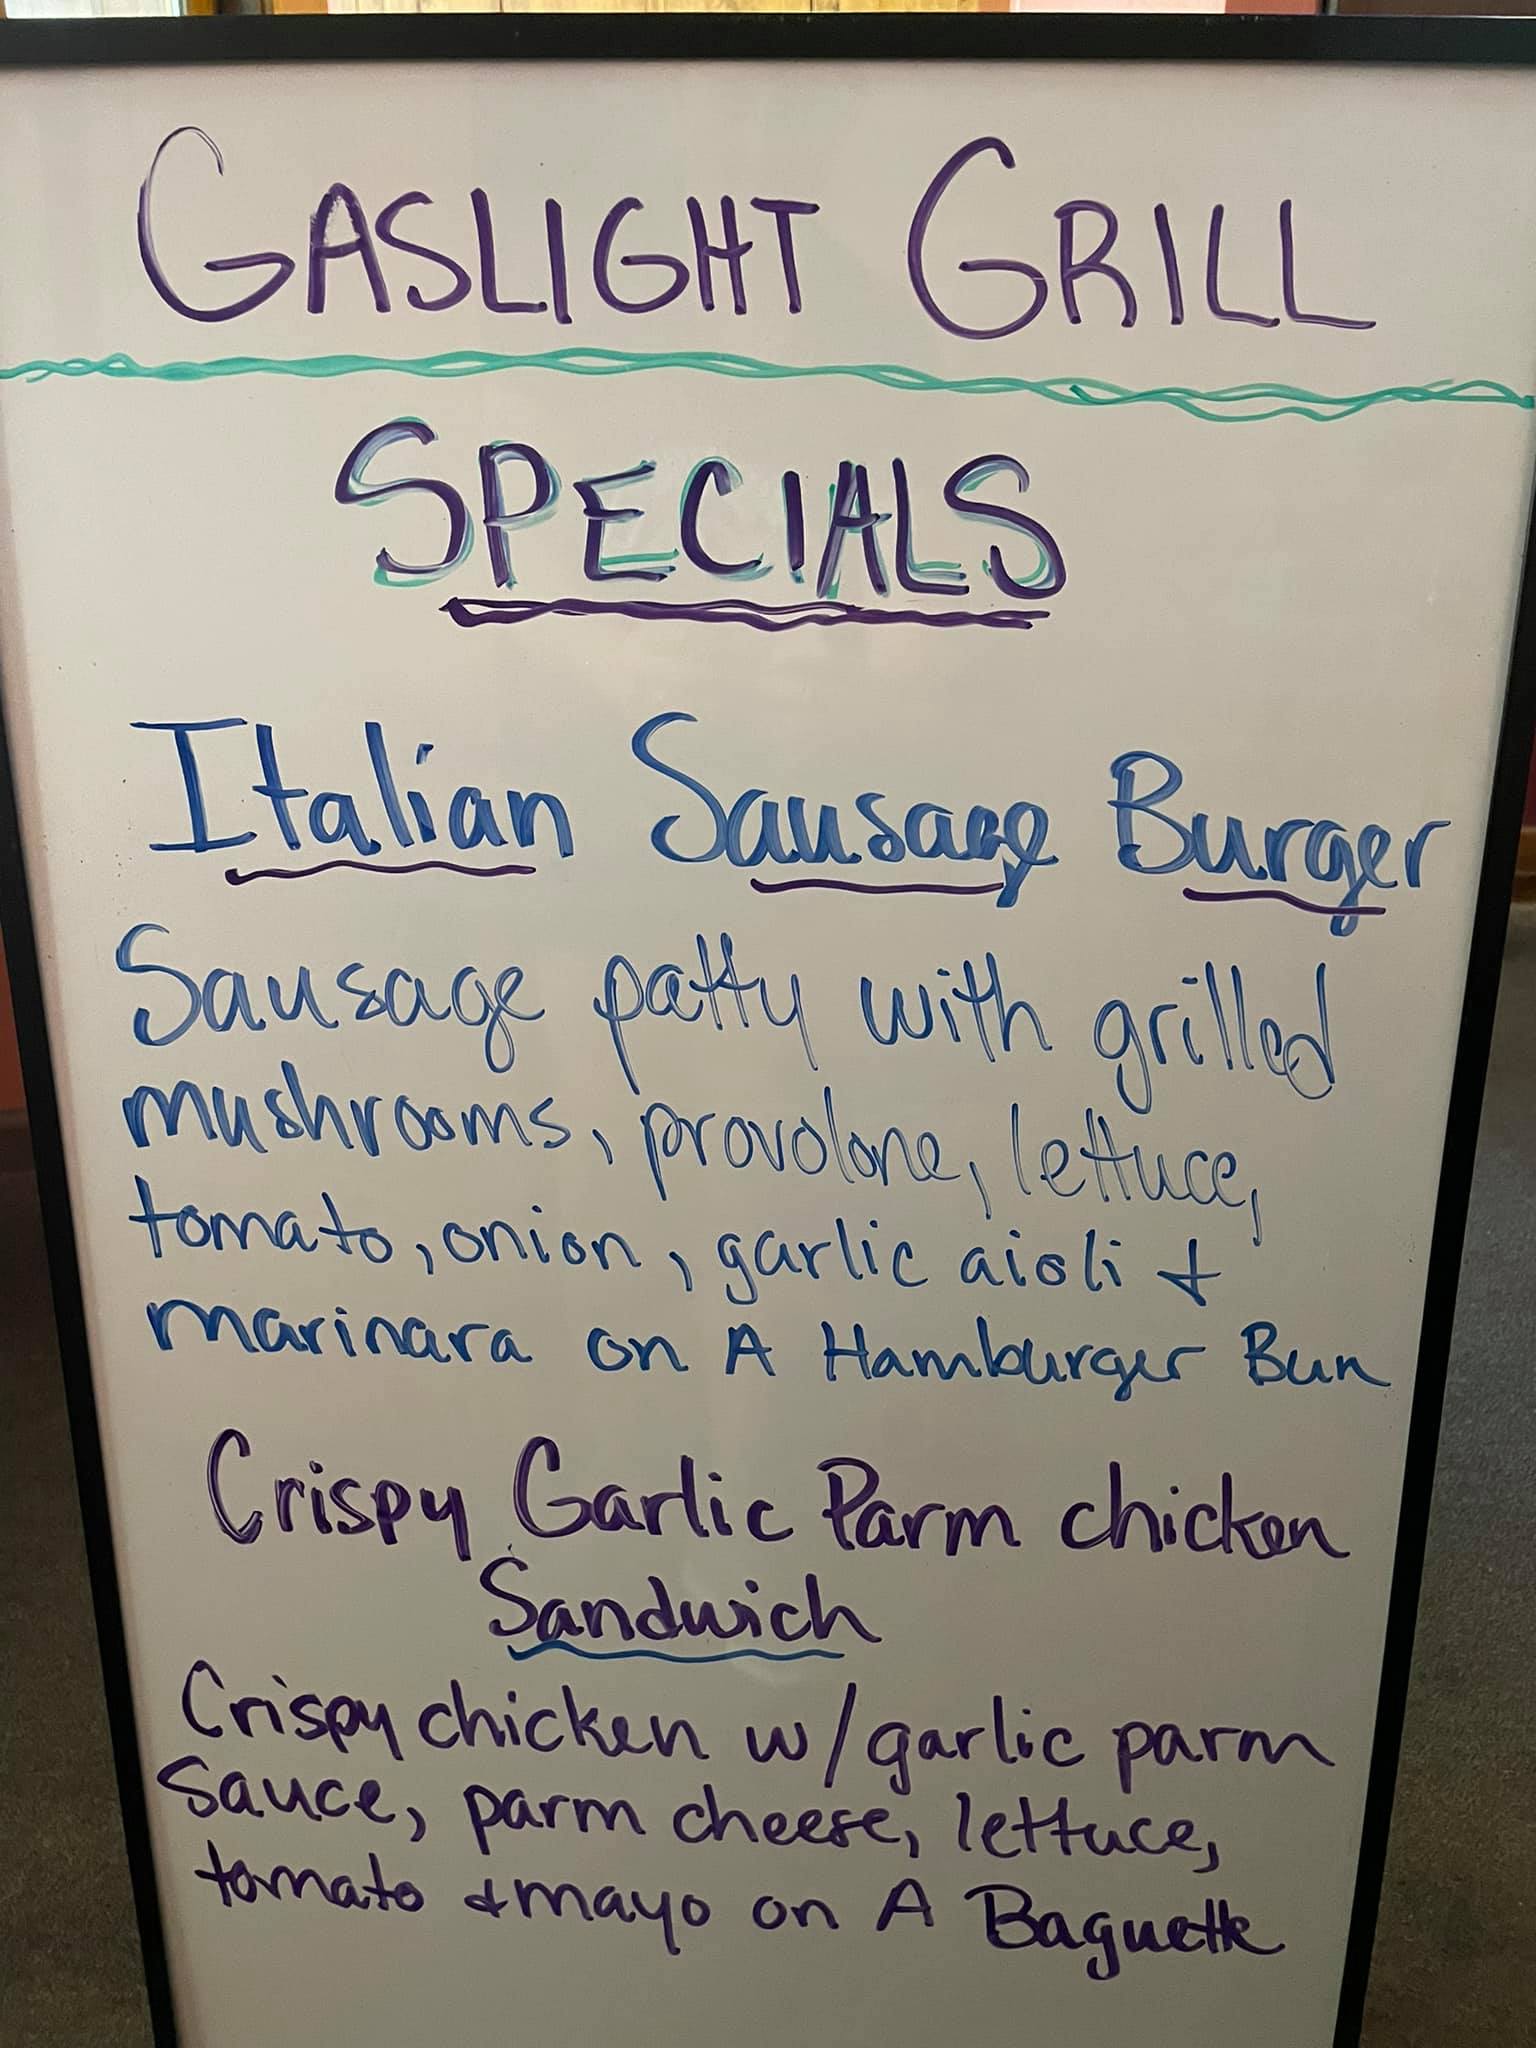 GASLIGHT GRILL
SPECIALS
Italian Sausage Burger
Sausage patty with grilled
mushrooms, provolone, lettuce,
tomato, onion, garlic aioli &
marinara on A Hamburger Bun
Crispy Garlic Parm chicken
Sandwich
Crispy chicken w/garlic parm
Sauce, parm cheese, lettuce,
tomato & mayo on A Baguette